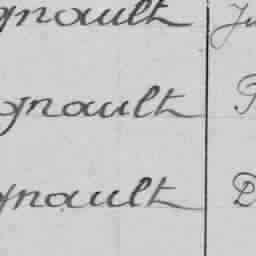 gnault Ju
gnault P
gnault D